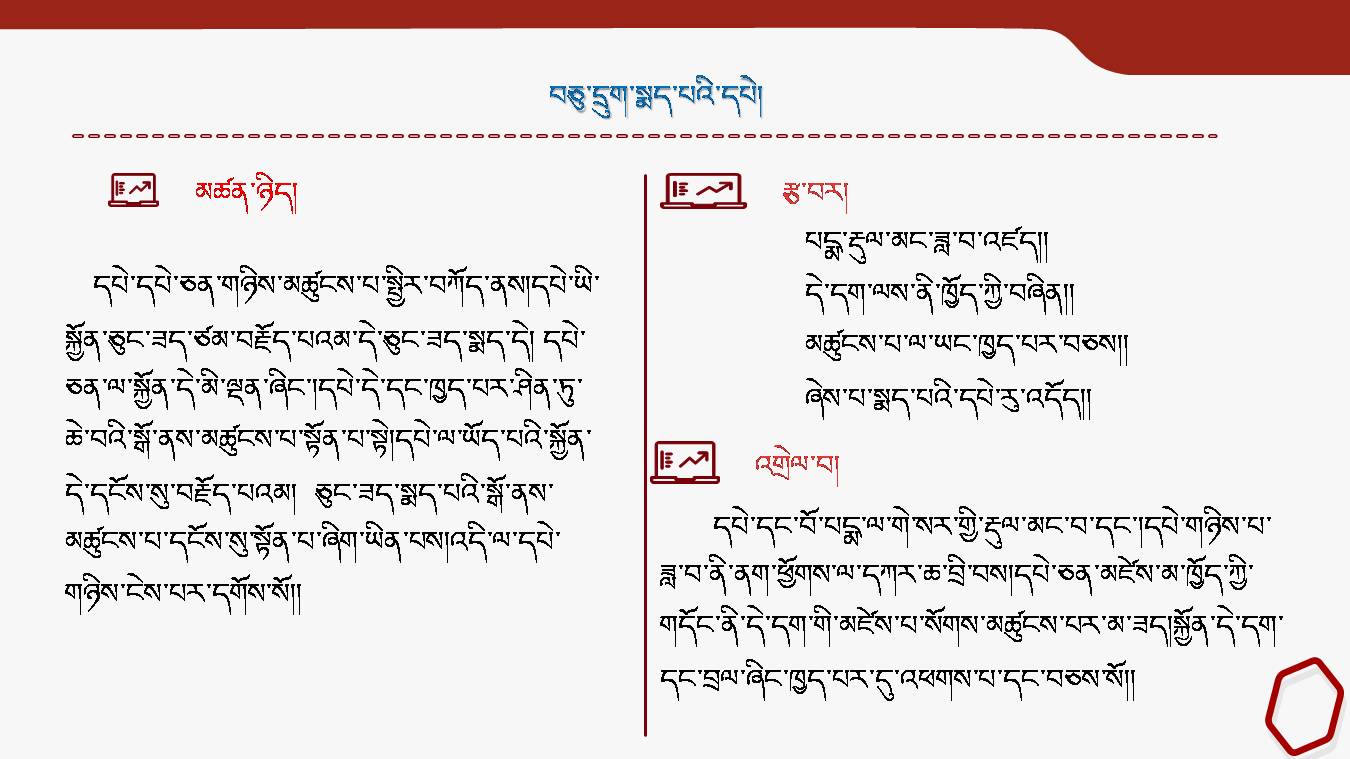 བཅུ་དྲུག་སྨད་པའི་དཔེ།
མཚན་ཉིད།
དཔེ་དཔེ་ཅན་གཉིས་མཚུངས་པ་སྤྱིར་བཀོད་ནས།དཔེ་ཡི་
སྐྱོན་ཅུང་ཟད་ཙམ་བརྗོད་པའམ་དེ་ཅུང་ཟད་སྨད་དེ། དཔེ་
ཅན་ལ་སྐྱོན་དེ་མི་ལྡན་ཞིང་།དཔེ་དེ་དང་ཁྱད་པར་ཤིན་ཏུ་
ཆེ་བའི་སྒོ་ནས་མཚུངས་པ་སྟོན་པ་སྟེ།དཔེ་ལ་ཡོད་པའི་སྐྱོན་
དེ་དངོས་སུ་བརྗོད་པའམ། ཅུང་ཟད་སྨད་པའི་སྒོ་ནས་
མཚུངས་པ་དངོས་སུ་སྟོན་པ་ཞིག་ཡིན་པས།འདི་ལ་དཔེ་
གཉིས་ངེས་པར་དགོས་སོ།།
རྩ་བར།
པདྨ་རྡུལ་མང་ཟླ་བ་འཛད།།
དེ་དག་ལས་ནི་ཁྱོད་ཀྱི་བཞིན།།
མཚུངས་པ་ལ་ཡང་ཁྱད་པར་བཅས།།
ཞེས་པ་སྨད་པའི་དཔེ་རུ་འདོད།།
འགྲེལ་བ།
དཔེ་དང་བོ་པདྨ་ལ་གེ་སར་གྱི་རྡུལ་མང་བ་དང་།དཔེ་གཉིས་པ་
ཟླ་བ་ནི་ནག་ཕྱོགས་ལ་དཀར་ཆ་བྲི་བས།དཔེ་ཅན་མཛེས་མ་ཁྱོད་ཀྱི་
གདོང་ནི་དེ་དག་གི་མཛེས་པ་སོགས་མཚུངས་པར་མ་ཟད།སྐྱོན་དེ་དག་
དང་བྲལ་ཞིང་ཁྱད་པར་དུ་འཕགས་པ་དང་བཅས་སོ།།